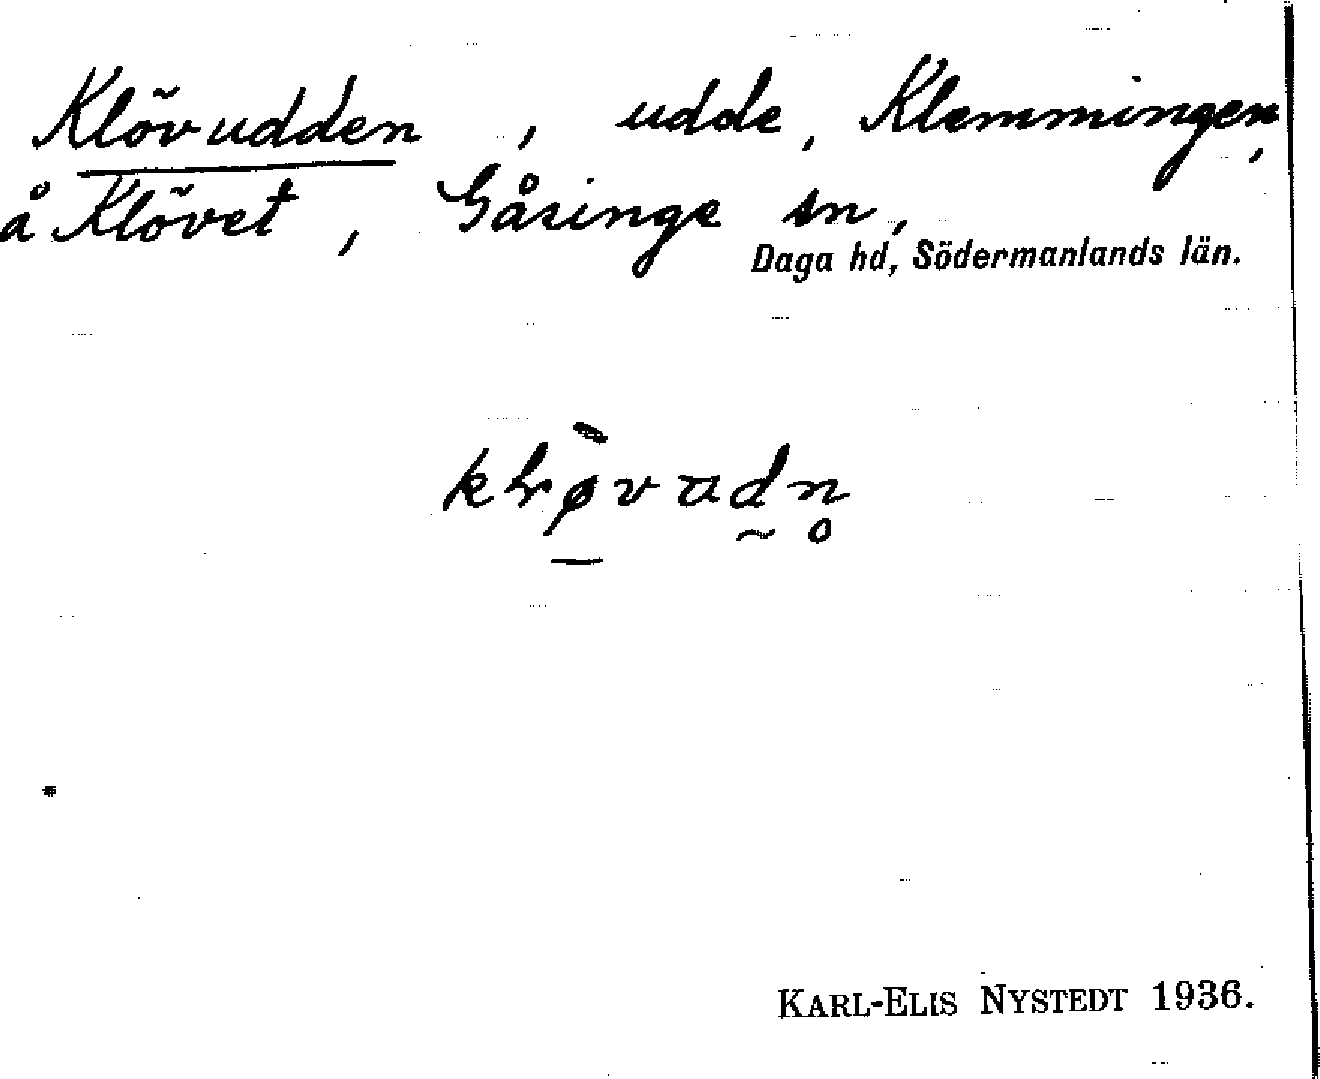 Klövudden, udde, Klemmingen,
å Klövet, Gåsinge sn,
Daga hd, Södermanlands län.
KARL-ELIS NYSTEDT 1936.